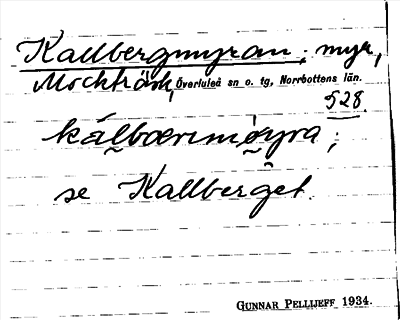 Kallbergmyran; myr,
Mockträsk, Överluleå sn o. tg, Norrbottens län.
528.
kálbærımøyra;
se Kallberget.
GUNNAR PELLIJEFF 1934.